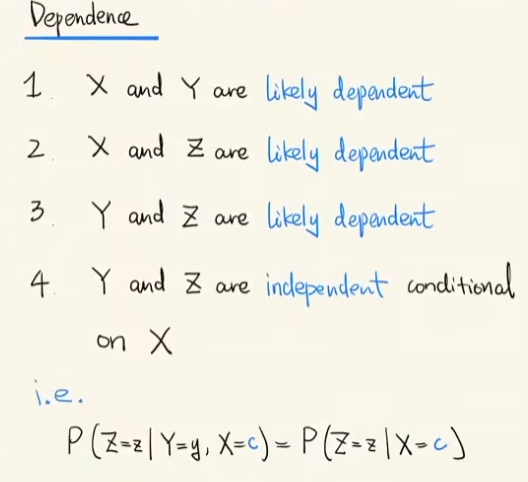 Dependence
1. X and Y are likely dependent
2. X and Z are likely dependent
3. Y and Z are likely dependent
4. Y and Z are independent conditional
on X
i.e.
P(Z=z|Y=y, X=c) = P(Z=z|X=c)